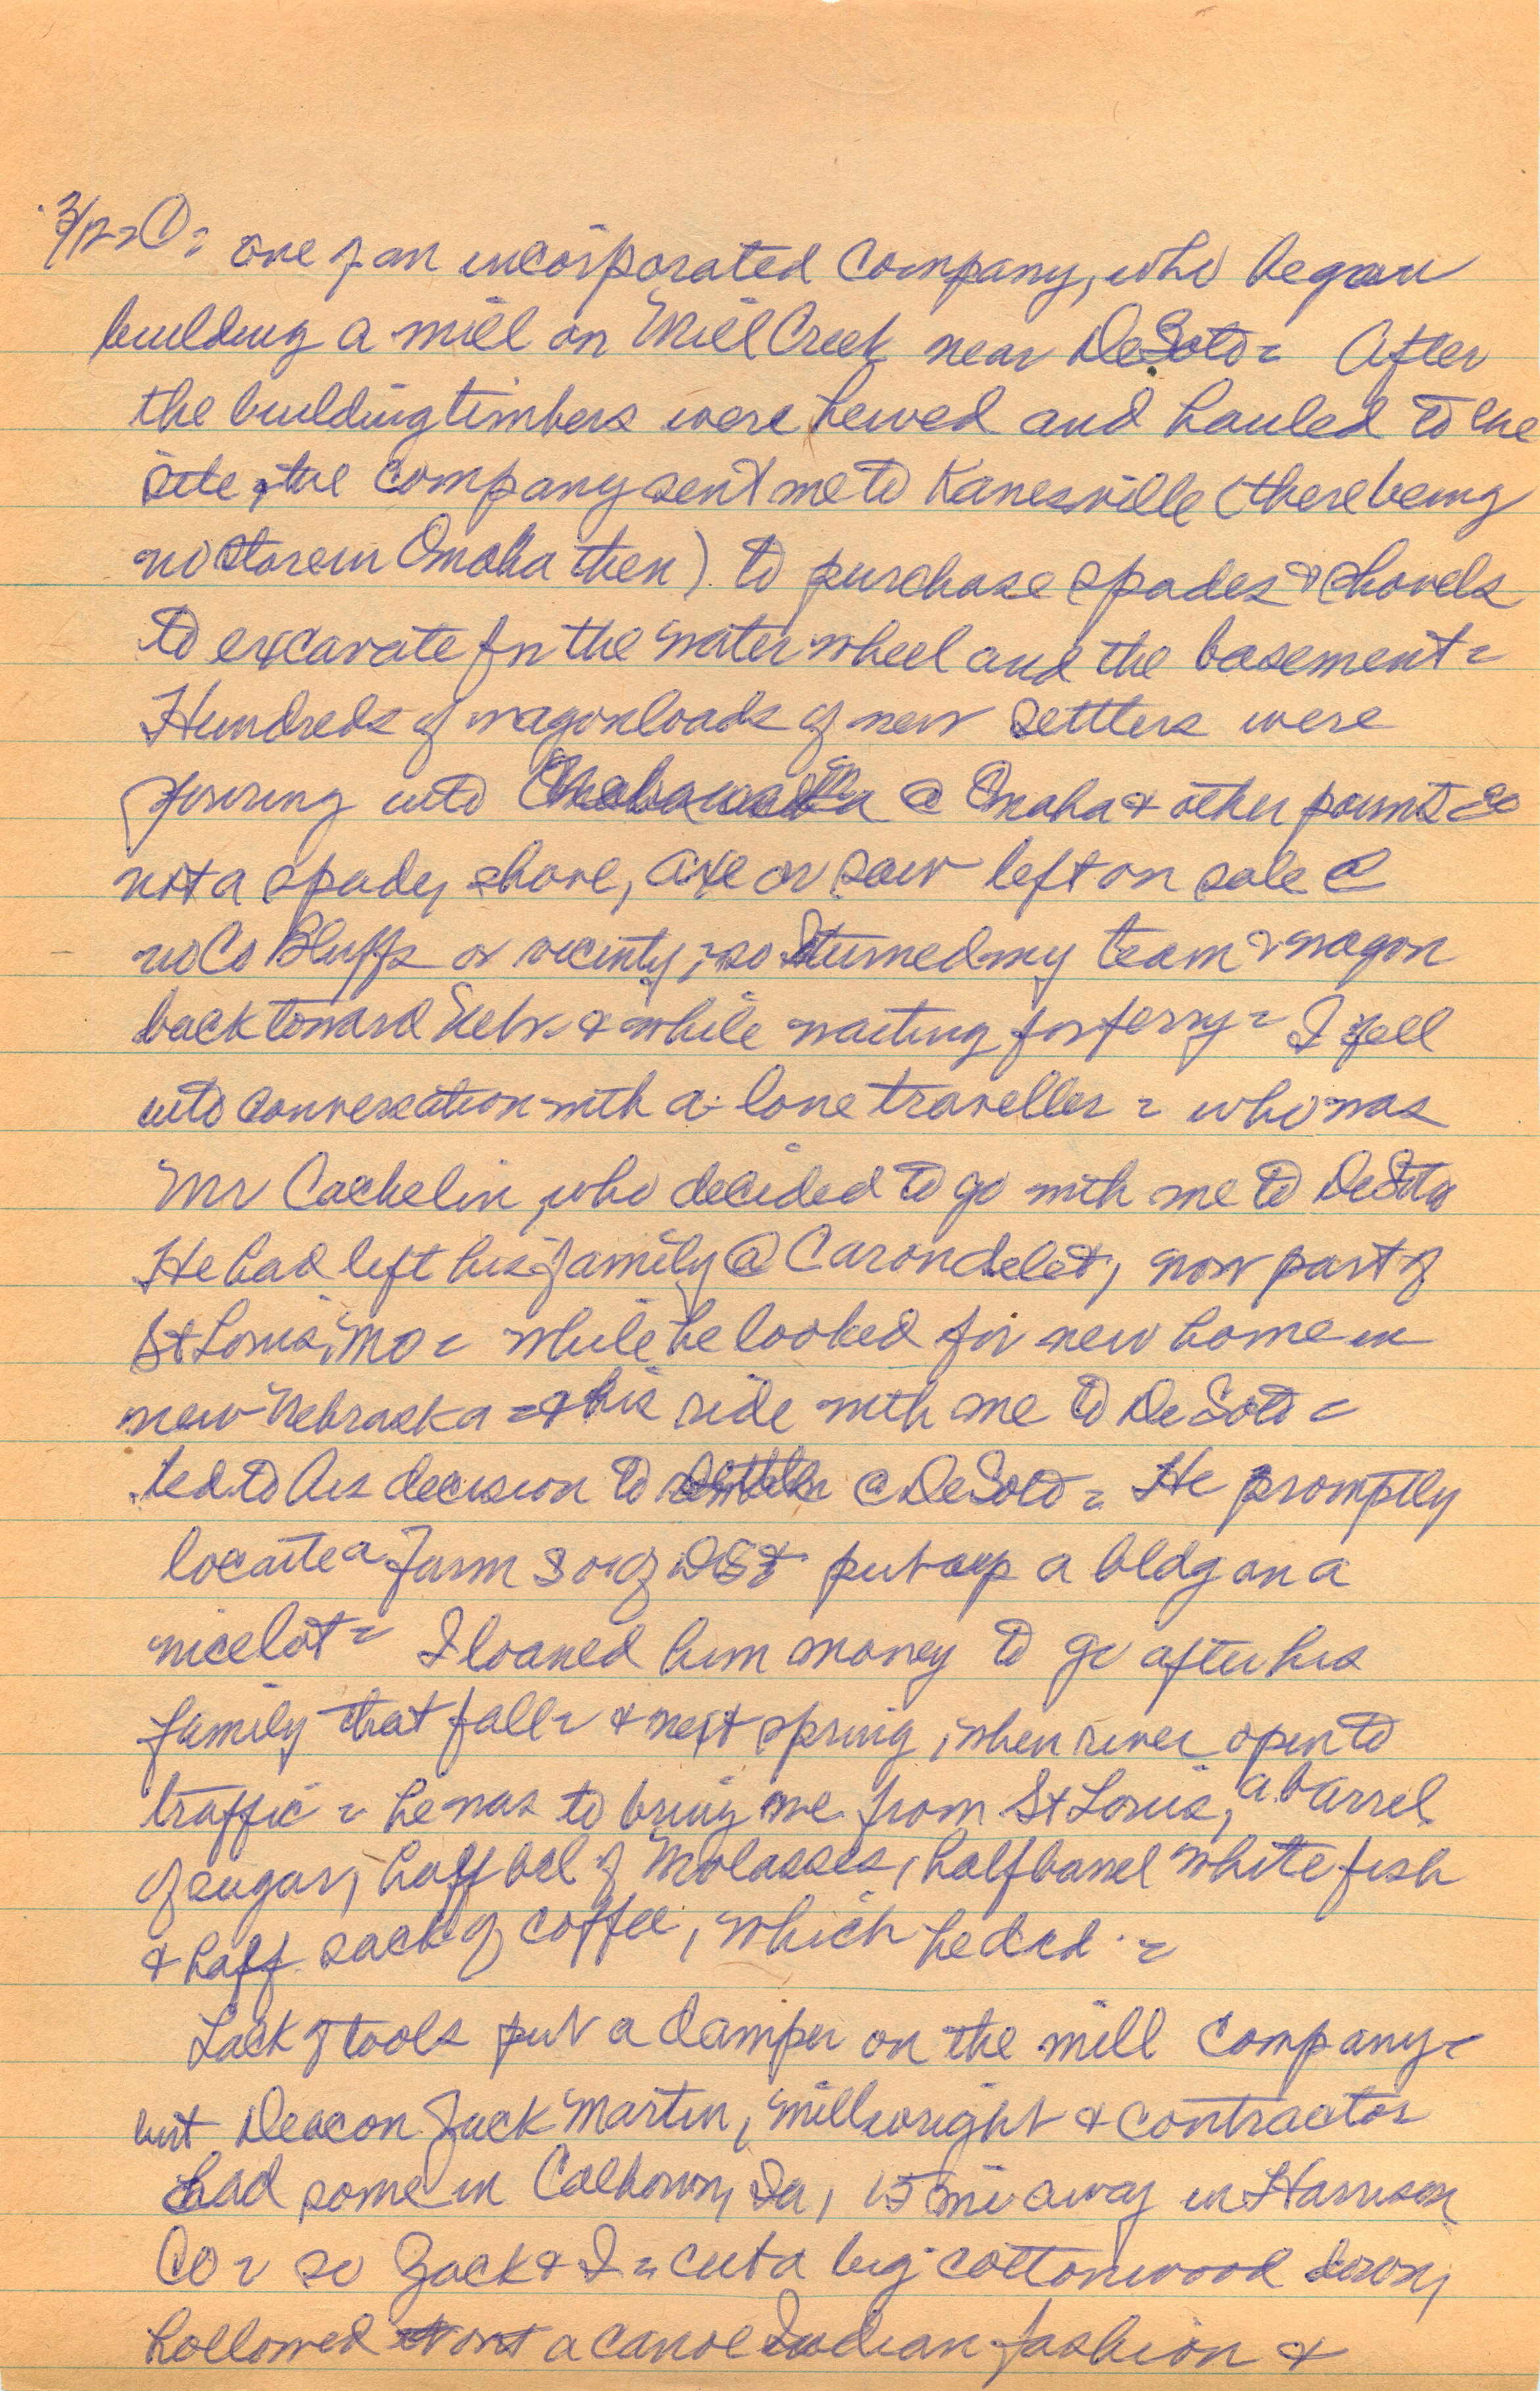 one of an incorporated company, who began
building a mill on Mill Creek near DeSoto = After
the building timbers were hewed and hauled to the
site, the company sent me to Kanesville (there being
no store in Omaha then) to purchase spades & shovels
to excavate for the water wheel and the basement =
Hundreds of wagonloads of new settlers were
pouring into @ Omaha & other points = so
not a spade, shove, axe or saw left on sale @
Co Bluffs or vicinty, = so I turned my team & wagon
back toward Nebr & while waiting for ferry = I fell
into conversation with a lone traveller = who was
Mr Cachelin, who decided to go with me to DeSoto
He had left his family @ Carondelet, now part of
St Louis, Mo = while he looked for new home in
new Nebraska = & his ride with me to DeSoto =
led to his decision to settle @ DeSoto = He promptly
locate a farm so of DS & put up a bldg on a
nice lot = I loaned him money to go after his
family that fall = & next spring, when river open to
traffic = he was to bring me from St Louis, a barrel
of sugar, half bbl of Molasses, half barrel white fish
& half sack of coffee, which he did. =
Lack of tools put a damper on the mill company =
but Deacon Jack Martin, millwright & contractor
had some in Calhoun, Ia, 15 mi away in Harrison
Co = so Jack & I = cut a big cottonwood down,
hollowed out a canoe Indian fashion &